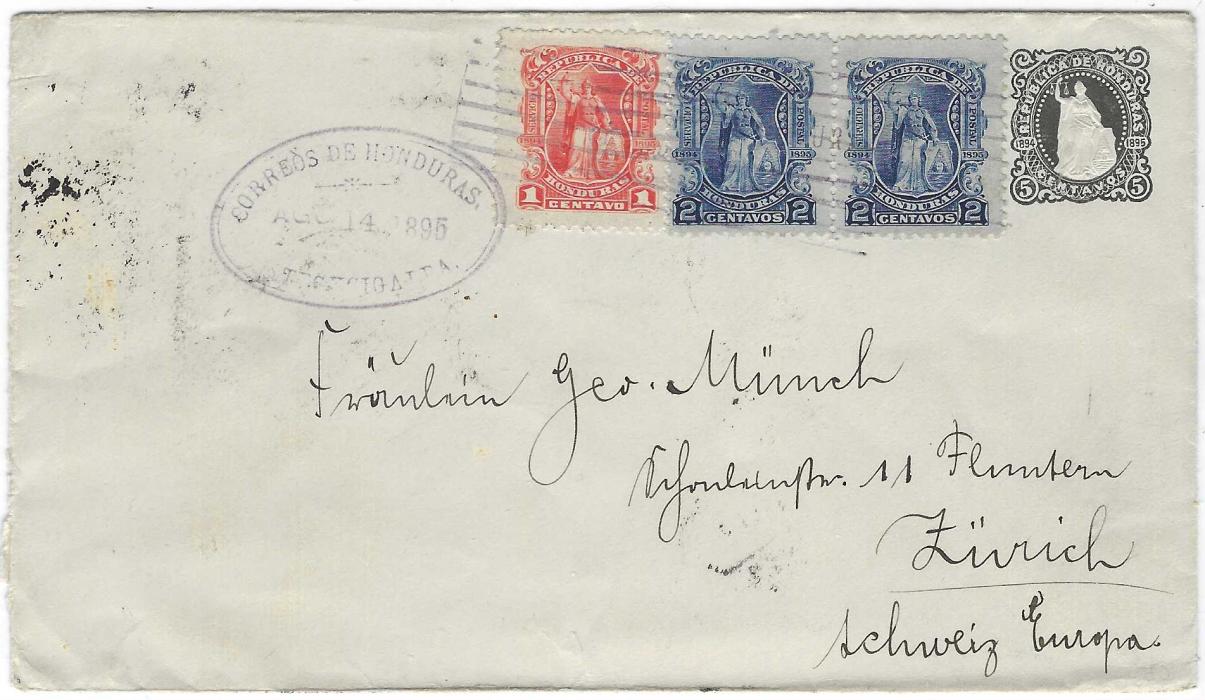 REPUBLICA DE
SERVICIO POSTAL
1894 1895
HONDURAS
1 CENTAVO 1
REPUBLICA DE
SERVICIO POSTAL
1894 1895
HONDURAS
2 CENTAVOS 2
REPUBLICA DE
SERVICIO POSTAL
1894 1895
HONDURAS
2 CENTAVOS 2
REPUBLICA DE HONDURAS
1894 1895
5 CENTAVOS 5
CORREOS DE HONDURAS.
AGO 14 1895
TEGUCIGALPA.
Fräulein Geo. Münch
11 Fluntern
Zürich
Schweiz Europa.